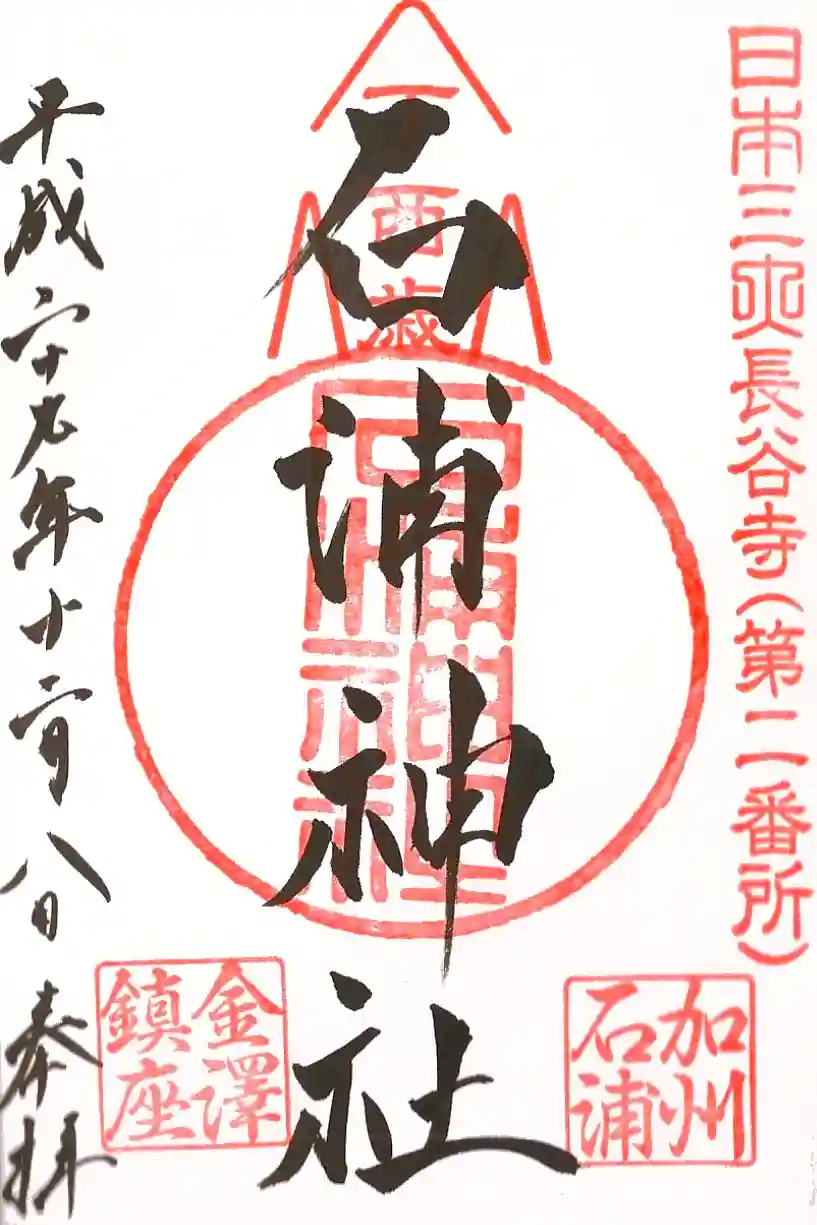 日本三大長谷寺(第二番所)
加州
石浦
石浦神社
石浦神社
金澤
鎮座
平成二十九年十二月八日 奉拝